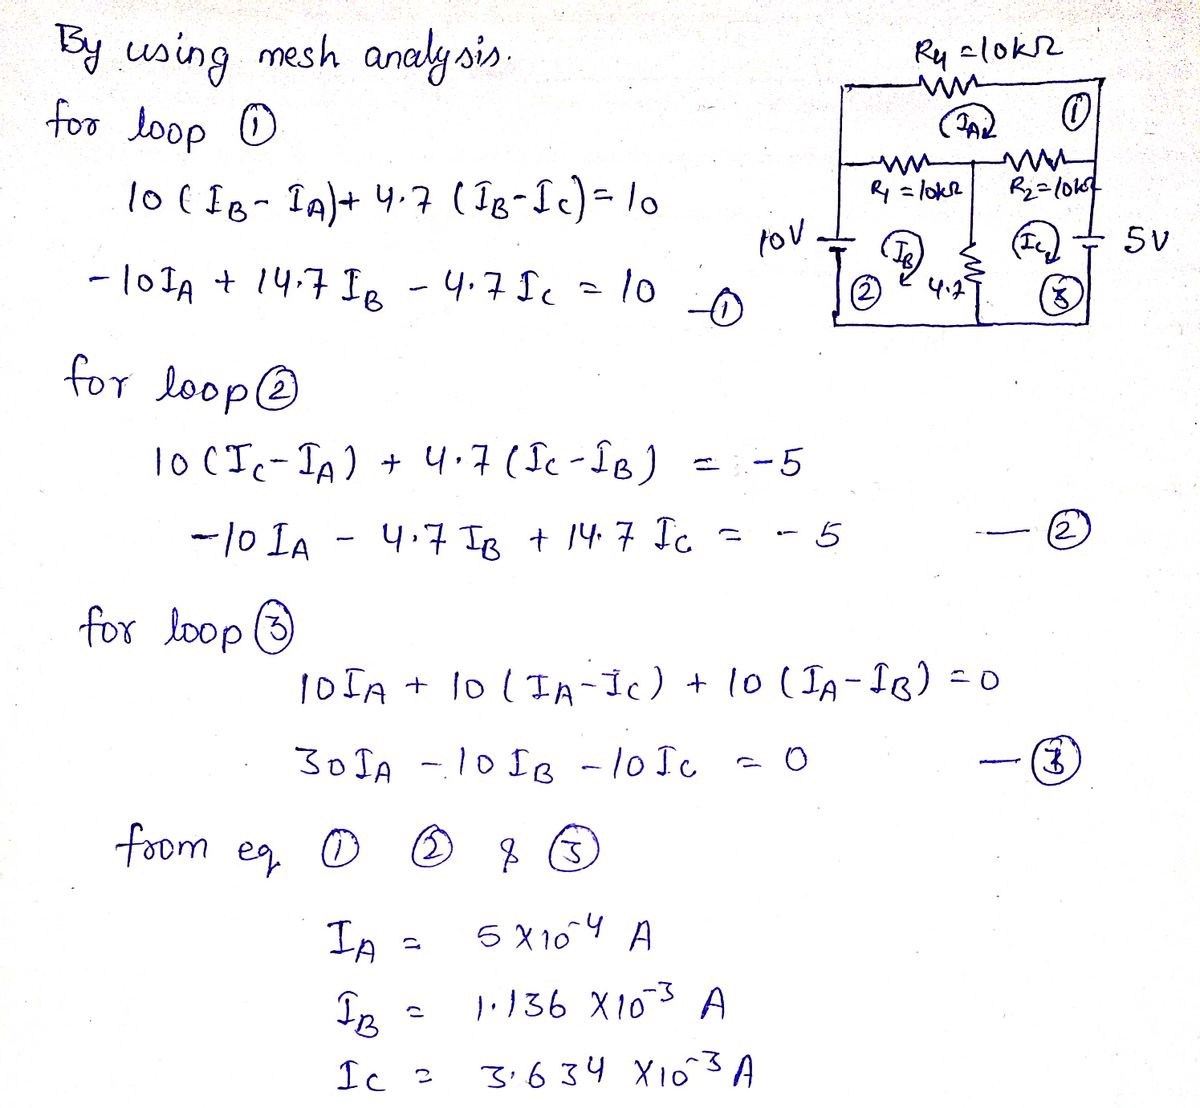 By using mesh analysis.
for loop ①
10 ( I_B - I_A) + 4.7 ( I_B - I_C) = 10
- 10 I_A + 14.7 I_B - 4.7 I_C = 10 —①
R4 = 10kΩ
I_A ①
R1 = 10kΩ R2 = 10kΩ
10V I_B I_C 5V
② 4.7 ③
for loop ②
10 ( I_C - I_A ) + 4.7 ( I_C - I_B ) = -5
-10 I_A - 4.7 I_B + 14.7 I_C = - 5 —②
for loop ③
10 I_A + 10 ( I_A - I_C ) + 10 ( I_A - I_B ) = 0
30 I_A - 10 I_B - 10 I_C = 0 —③
from eq ① ② & ③
I_A = 5 X 10^-4 A
I_B = 1.136 X 10^-3 A
I_C = 3.634 X 10^-3 A